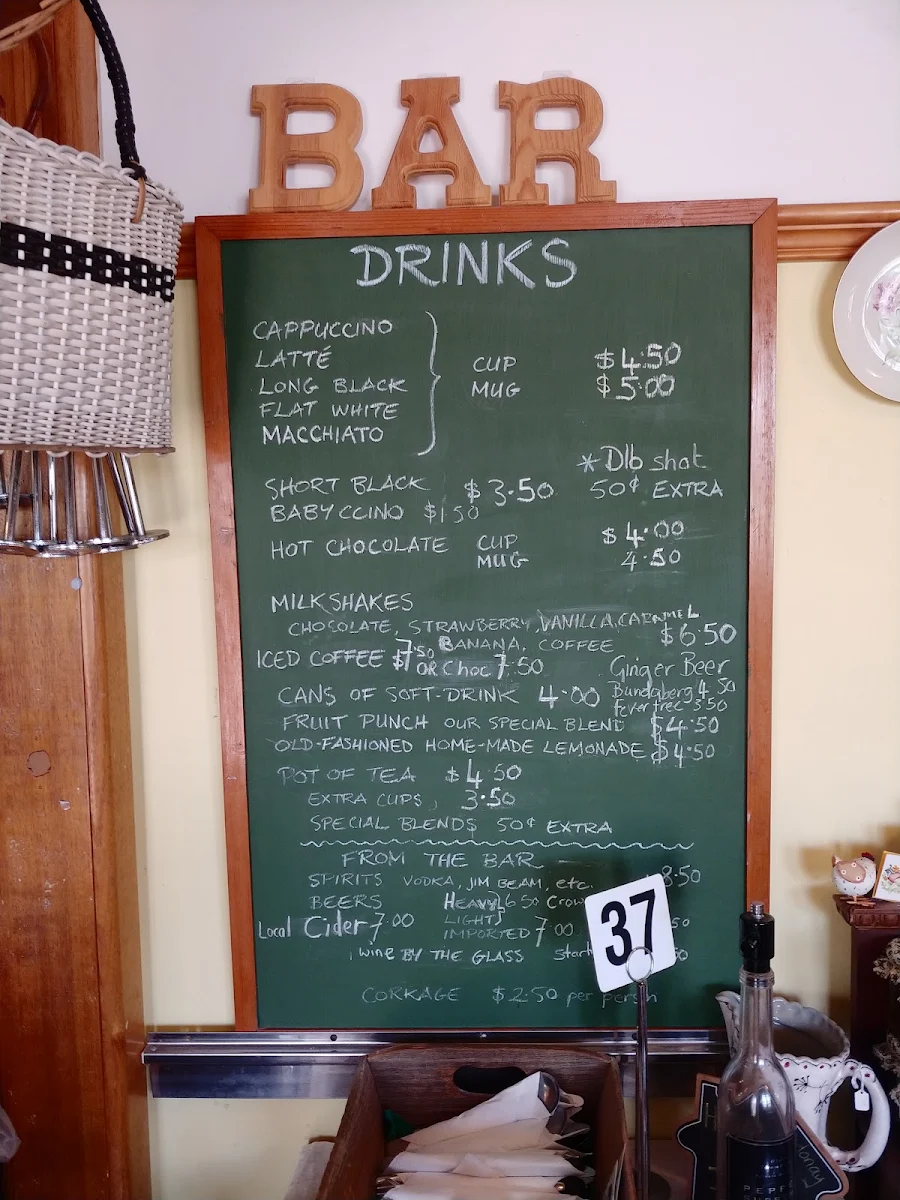 BAR
DRINKS
CAPPUCCINO
LATTÉ
LONG BLACK
FLAT WHITE
MACCHIATO
CUP $4.50
MUG $5.00
*Dlb shot
50¢ EXTRA
SHORT BLACK $3.50
BABYCCINO $1.50
HOT CHOCOLATE CUP $4.00
MUG 4.50
MILKSHAKES
CHOCOLATE, STRAWBERRY, VANILLA, CARAMEL
BANANA, COFFEE $6.50
ICED COFFEE $7.50 OR Choc 7.50
Ginger Beer
Bundaberg 4.50
fevertree 3.50
CANS OF SOFT-DRINK 4.00
FRUIT PUNCH OUR SPECIAL BLEND $4.50
OLD-FASHIONED HOME-MADE LEMONADE $4.50
POT OF TEA $4.50
EXTRA CUPS, 3.50
SPECIAL BLENDS 50¢ EXTRA
FROM THE BAR
SPIRITS VODKA, JIM BEAM, etc. 8.50
BEERS HEAVY 6.50
LIGHT
Local Cider 7.00
IMPORTED 7.00
wine BY THE GLASS
CORKAGE $2.50 per person
37